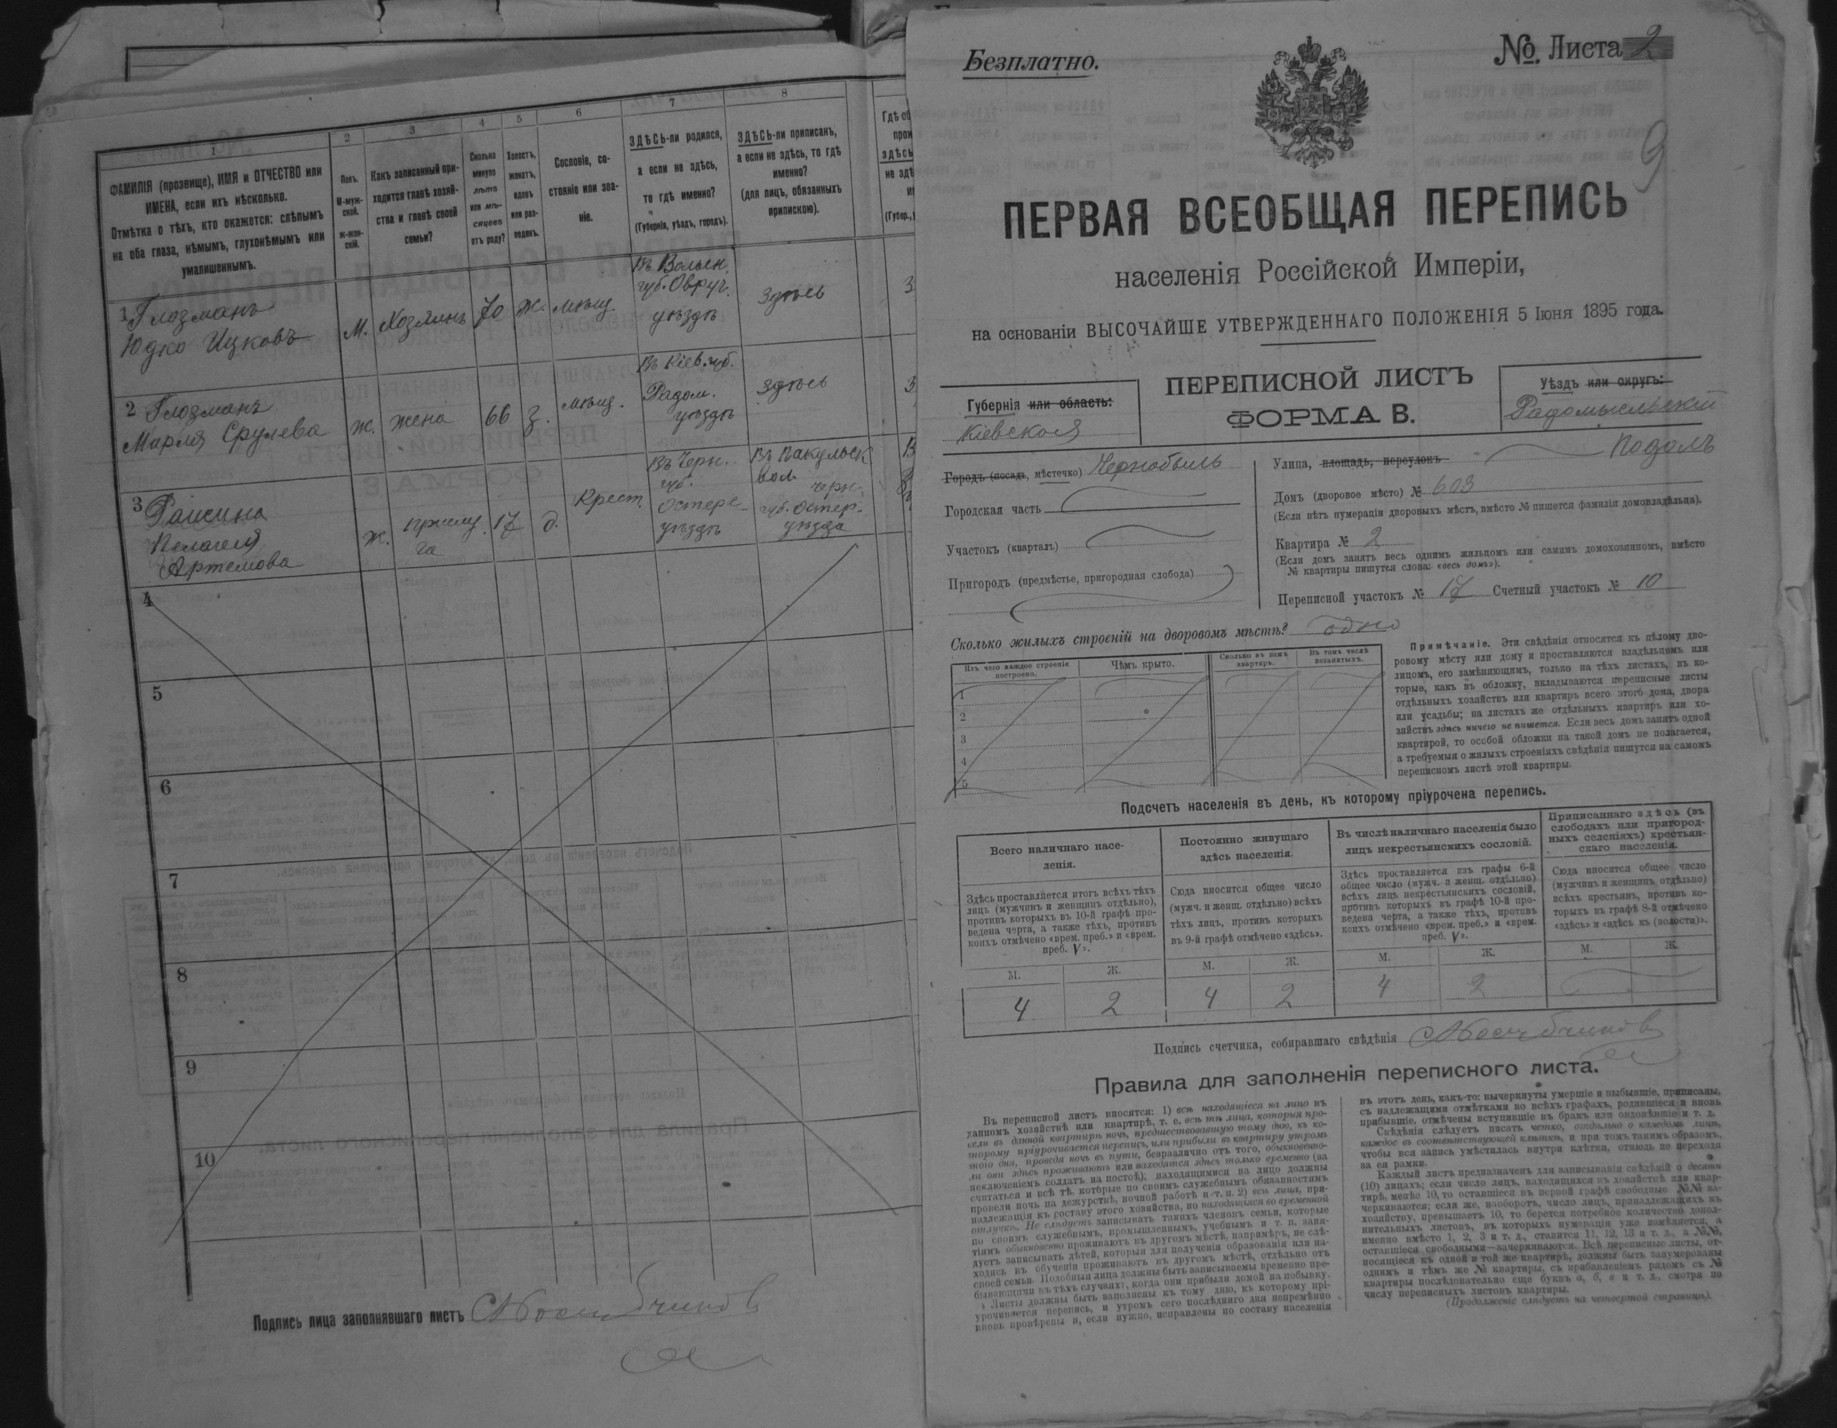 1
2
3
4
5
6
7
8
ФАМИЛІЯ (прозвище), ИМЯ и ОТЧЕСТВО или
ИМЕНА, если ихъ нѣсколько.
Отмѣтка о тѣхъ, кто окажется: слѣпымъ
на оба глаза, нѣмымъ, глухонѣмымъ или
умалишеннымъ.
Полъ.
М-муж-
ской.
Ж-жен-
скій.
Какъ записанный при-
ходится главѣ хозяй-
ства и главѣ своей
семьи?
Сколько
минуло
лѣтъ
или мѣ-
сяцевъ
отъ роду?
Холостъ,
женатъ,
вдовъ
или раз-
веденъ.
Сословіе, со-
стояніе или зва-
ніе.
ЗДѢСЬ-ли родился,
а если не здѣсь,
то гдѣ именно?
(Губернія, уѣздъ, городъ).
ЗДѢСЬ-ли приписанъ,
а если не здѣсь, то гдѣ
именно?
(для лицъ, обязанныхъ
припискою).
1 Глозманъ
Юдко Ицковъ
М. Хозяинъ 70 Ж. мѣщ.
Въ Волын.
губ. Овруч.
уѣздѣ
Здѣсь
2 Глозманъ
Марля Срулева
Ж. жена 66 З. мѣщ.
Въ Кіев. губ.
Радом.
уѣздѣ
Здѣсь
3
Пелагея
Артемова
Ж. 17 д. Крест.
Въ Черн.
губ.
Остерс.
уѣздѣ
Въ Пакульск
вол. Черн.
губ. Остер.
уѣзда
4
5
6
7
8
9
10
Подпись лица заполнявшаго листъ
Безплатно.
№ Листа 2
9
ПЕРВАЯ ВСЕОБЩАЯ ПЕРЕПИСЬ
населенія Россійской Имперіи,
на основаніи ВЫСОЧАЙШЕ УТВЕРЖДЕННАГО ПОЛОЖЕНІЯ 5 Іюня 1895 года.
Губернія или область:
Кіевская
ПЕРЕПИСНОЙ ЛИСТЪ
ФОРМА В.
Уѣздъ или округъ:
Радомысльскій
Городъ (посадъ, мѣстечко) Чернобыль
Городская часть
Участокъ (кварталъ)
Пригородъ (предмѣстье, пригородная слобода)
Улица, площадь, переулокъ Подолъ
Домъ (дворовое мѣсто) № 603
(Если нѣтъ нумераціи дворовыхъ мѣстъ, вмѣсто № пишется фамилія домовладѣльца).
Квартира № 2
(Если домъ занятъ весь однимъ жильцомъ или самимъ домохозяиномъ, вмѣсто
№ квартиры пишутся слова: «весь домъ»).
Переписной участокъ № 17 Счетный участокъ № 10
Сколько жилыхъ строеній на дворовомъ мѣстѣ? одно
Изъ чего каждое строеніе
построено.
Чѣмъ крыто.
Сколько въ домѣ
квартиръ.
Въ томъ числѣ
незанятыхъ.
1
2
3
4
5
Примѣчаніе. Эти свѣдѣнія относятся къ цѣлому дво-
ровому мѣсту или дому и проставляются владѣльцемъ или
лицомъ, его замѣняющимъ, только на тѣхъ листахъ, въ ко-
торые, какъ въ обложку, вкладываются переписные листы
отдѣльныхъ хозяйствъ или квартиръ всего этого дома, двора
или усадьбы; на листахъ же отдѣльныхъ квартиръ или хо-
зяйствъ здѣсь ничего не пишется. Если весь домъ занятъ одной
квартирой, то особой обложки на такой домъ не полагается,
а требуемыя о жилыхъ строеніяхъ свѣдѣнія пишутся на самомъ
переписномъ листѣ этой квартиры.
Подсчетъ населенія въ день, къ которому пріурочена перепись.
Всего наличнаго насе-
ленія.
Здѣсь проставляется итогъ всѣхъ тѣхъ
лицъ (мужчинъ и женщинъ отдѣльно),
противъ которыхъ въ 10-й графѣ про-
ведена черта, а также тѣхъ, противъ
коихъ отмѣчено «врем. преб.» и «врем.
преб. V».
Постоянно живущаго
здѣсь населенія.
Сюда вносится общее число
(мужч. и женщ. отдѣльно) всѣхъ
тѣхъ лицъ, противъ которыхъ
въ 9-й графѣ отмѣчено «здѣсь».
Въ числѣ наличнаго населенія было
лицъ некрестьянскихъ сословій.
Здѣсь проставляется изъ графы 6-й
общее число (мужч. и женщ. отдѣльно)
всѣхъ лицъ некрестьянскихъ сословій,
противъ которыхъ въ графѣ 10-й про-
ведена черта, а также тѣхъ, противъ
коихъ отмѣчено «врем. преб.» и «врем.
преб. V».
Приписаннаго здѣсь (въ
слободахъ или пригород-
ныхъ селеніяхъ) крестьян-
скаго населенія.
Сюда вносится общее число
(мужчинъ и женщинъ отдѣльно)
всѣхъ крестьянъ, противъ ко-
торыхъ въ графѣ 8-й отмѣчено
«здѣсь» и «здѣсь къ (волости)».
М. Ж. М. Ж. М. Ж. М. Ж.
4 2 4 2 4 2
Подпись счетчика, собиравшаго свѣдѣнія
Правила для заполненія переписного листа.
Въ переписной листъ вносятся: 1) всѣ находящіеся на лицо въ
данномъ хозяйствѣ или квартирѣ, т. е. всѣ тѣ лица, которыя про-
вели въ данной квартирѣ ночь, предшествовавшую тому дню, къ ко-
торому пріурочивается перепись, или прибыли въ квартиру утромъ
этого дня, проведя ночь въ пути, безразлично отъ того, обыкновенно-
ли они здѣсь проживаютъ или находятся здѣсь только временно (за
исключеніемъ солдатъ на постоѣ); находящимися на лицо должны
считаться и всѣ тѣ, которые по своимъ служебнымъ обязанностямъ
провели ночь на дежурствѣ, ночной работѣ и т. п. 2) всѣ лица, при-
надлежащія къ составу этого хозяйства, но находящіяся во временной
отлучкѣ. Не слѣдуетъ записывать такихъ членовъ семьи, которые
по своимъ служебнымъ, промышленнымъ, учебнымъ и т. п. заня-
тіямъ обыкновенно проживаютъ въ другомъ мѣстѣ, напримѣръ, не слѣ-
дуетъ записывать дѣтей, которыя для полученія образованія или на-
ходясь въ обученіи проживаютъ въ другомъ мѣстѣ, отдѣльно отъ
своей семьи. Подобныя лица должны быть записываемы временно пре-
бывающими въ тѣхъ случаяхъ, когда они прибыли домой на побывку.
Листы должны быть заполнены къ тому дню, къ которому прі-
урочивается перепись, и утромъ сего послѣдняго дня непремѣнно
вновь провѣрены и, если нужно, исправлены по составу населенія
въ этотъ день, какъ-то: вычеркнуты умершіе и выбывшіе, приписаны,
съ надлежащими отмѣтками во всѣхъ графахъ, родившіеся и вновь
прибывшіе, отмѣчены вступившіе въ бракъ или овдовѣвшіе и т. д.
Свѣдѣнія слѣдуетъ писать четко, отдѣльно о каждомъ лицѣ,
каждое въ соотвѣтствующей клѣткѣ, и при томъ такимъ образомъ,
чтобы вся запись умѣстилась внутри клѣтки, отнюдь не переходя
за ея рамки.
Каждый листъ предназначенъ для записыванія свѣдѣній о десяти
(10) лицахъ; если число лицъ, находящихся въ хозяйствѣ или квар-
тирѣ, менѣе 10, то оставшіеся въ первой графѣ свободные №№ за-
черкиваются; если же, наоборотъ, число лицъ, принадлежащихъ къ
хозяйству, превышаетъ 10, то берется потребное количество допол-
нительныхъ листовъ, въ которыхъ нумерація уже измѣняется, а
именно вмѣсто 1, 2, 3 и т. д., ставится 11, 12, 13 и т. д., а №№,
оставшіеся свободными—зачеркиваются. Всѣ переписные листы, от-
носящіеся къ одной и той же квартирѣ, должны быть занумерованы
однимъ и тѣмъ же № квартиры, съ прибавленіемъ рядомъ съ №
квартиры послѣдовательно еще буквъ а, б, в и т. д., смотря по
числу переписныхъ листовъ квартиры.
(Продолженіе слѣдуетъ на четвертой страницѣ).